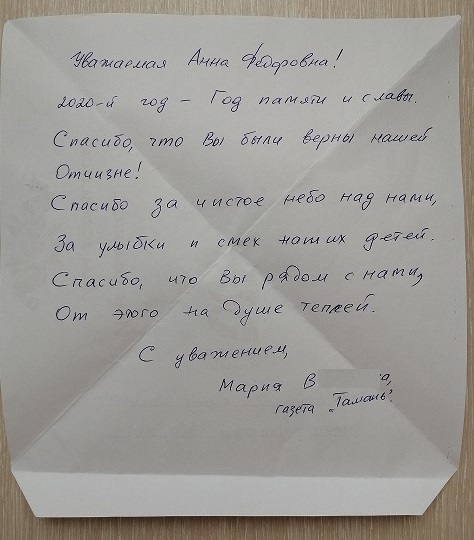 Уважаемая Анна Федоровна!
2020-й год – Год памяти и славы.
Спасибо, что Вы были верны нашей
Отчизне!
Спасибо за чистое небо над нами,
За улыбки и смех наших детей.
Спасибо, что Вы рядом с нами,
От этого на душе теплей.
С уважением,
Мария В а,
газета „Тамань".